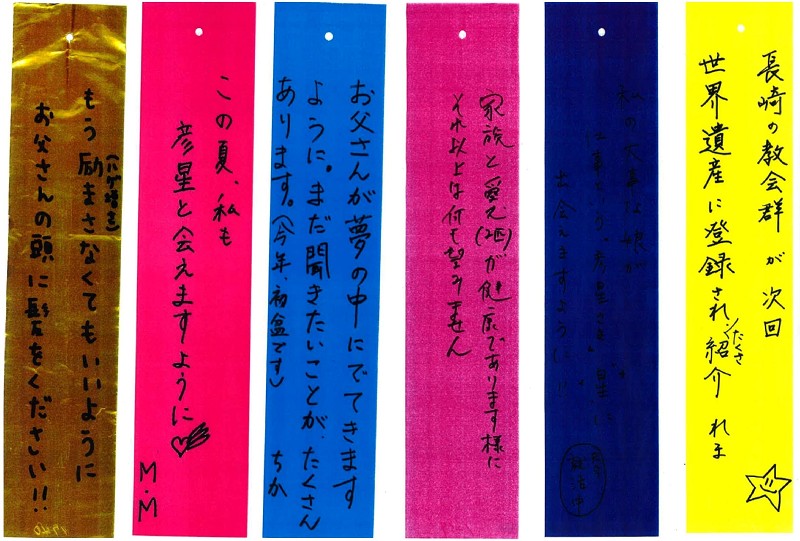 長崎の教会群が次回
世界遺産に登録され 紹介 れま
たくさ
私の大事な娘が
出会えますように!!
家族と愛犬(2匹)が健康であります様に
それ以上は何も望みません
お父さんが夢の中にでてきます
ように。まだ聞きたいことが、たくさん
あります。(今年、初盆です) ちか
この夏、私も
彦星と会えますように♡
M.M
(ハゲ増さ)
もう励まさなくてもいいように
お父さんの頭に髪をください!!